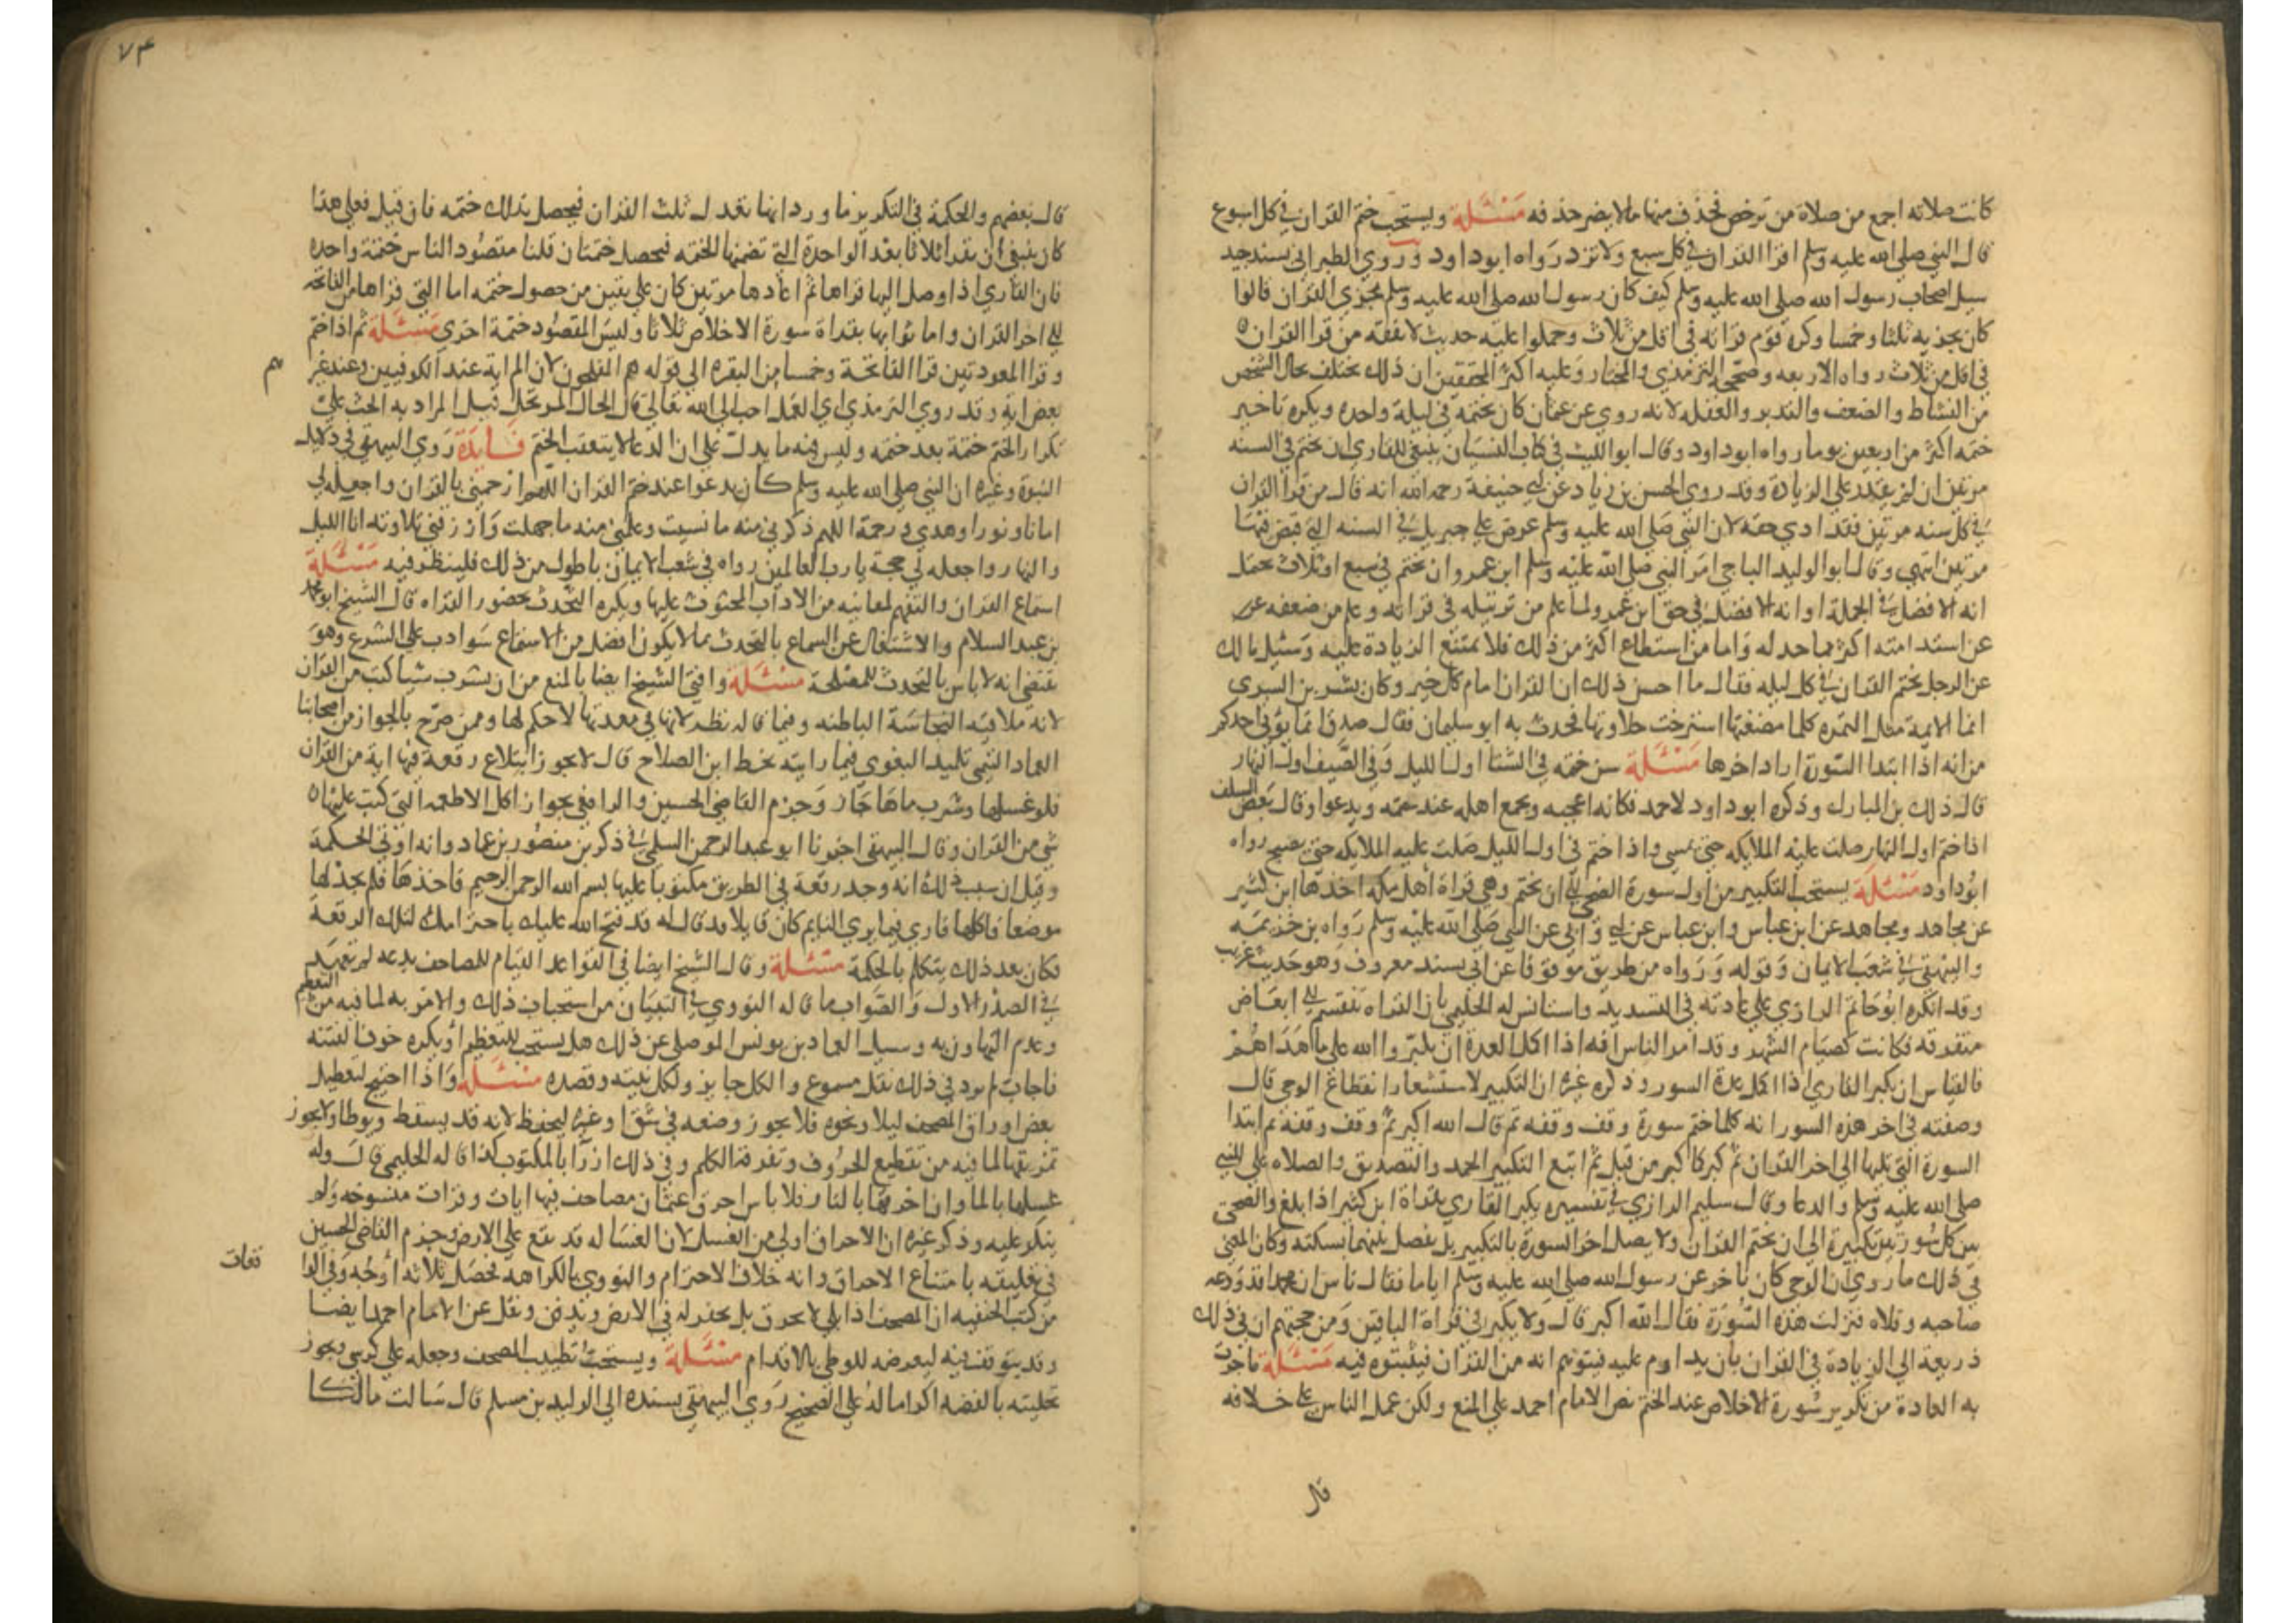 كانت صلاته اجمع من صلاة من ترخص فحذف منها مالا يضر حذفه مسئلة ويستحب ختم القران في كل اسبوع
قال النبي صلى الله عليه وسلم اقرا القران في كل سبع ولا تزد رواه ابو داود وروي الطبراني بسند جيد
سيل اصحاب رسول الله صلى الله عليه وسلم كيف كان رسول الله صلى الله عليه وسلم يجزي القران قالوا
كان يجزيه ثلثا وخمسا وكره قوم قرانه في اقل من ثلاث وحملوا عليه حديث لا يفقه من قرا القران
في اقل من ثلاث رواه الاربعه وصححه الترمذي والمختار وعليه اكثر المحققين ان ذلك يختلف بحال الشخص
من النشاط والضعف والتدبر والغفله لانه روي عن عثمان كان يختمه في ليلة واحده ويكره تاخير
ختمه اكثر من اربعين يوما رواه ابو داود وقال ابو الليث في كتاب البستان ينبغي للقاري ان يختم في السنه
مرتين ان لم يقدر على الزيادة وقد روي الحسن بن زياد عن ابي حنيفة رحمه الله انه قال من قرا القران
في كل سنه مرتين فقد ادي حقه لان النبي صلى الله عليه وسلم عرض على جبريل في السنه التي قبض فيها
مرتين انتهي وقال ابو الوليد الباجي امر النبي صلى الله عليه وسلم ابن عمرو ان يختم في سبع او ثلاث يحمل
انه الافضل في الجملة او انه الافضل في حق ابن عمرو لما علم من ترتيله في قرانه وعلم من ضعفه عن
عن استدامته اكثر مما حد له واما من استطاع اكثر من ذلك فلا تمتنع الزيادة عليه وسئل مالك
عن الرجل يختم القران في كل ليله فقال ما احسن ذلك ان القران امام كل خير وكان بشر بن السري
انما الاية مثل التمره كلما مضغتها استخرجت حلاوتها فحدث به ابو سليمان فقال صدق انما يؤتي احدكم
من انه اذا ابتدا السورة اراد اخرها مسئلة سن ختمه في الشتا اول الليل وفي الصيف اول النهار
قال ذلك بن المبارك وذكره ابو داود لاحمد فكانه اعجبه ويجمع اهله عند ختمه ويدعوا وقال بعض السلف
اذا ختم اول النهار صلت عليه الملايكه حتى يمسي واذا ختم في اول الليل صلت عليه الملايكه حتى يصبح رواه
ابو داود مسئلة يستحب التكبير من اول سورة الضحى الى ان يختم وهي قراة اهل مكه اخذها ابن كثير
عن مجاهد ومجاهد عن ابن عباس وابن عباس عن ابي وابي عن النبي صلى الله عليه وسلم رواه بن خزيمه
والبيهقي في شعب الايمان وقوله ورواه من طريق موقوفا عن ابي بسند معروف وهو حديث غريب
وقد انكره ابو حاتم الرازي علي عادته في التشديد واستانس له الحليمي بان القراه تنقسم الى ابعاض
متفرقه فكانت كصيام الشهر وقد امر الناس انه اذا اكملوا العدة ان يكبروا الله على ما هداهم
فالقياس ان يكبر القاري اذا اكمل عدة السور وذكره غيره ان التكبير لاستشعار انقطاع الوحي قال
وصفته في اخر هذه السور انه كلما ختم سورة وقف وقفه ثم قال الله اكبر ثم وقف وقفة ثم ابتدا
السورة التي تليها الى اخر القران ثم كبر كما كبر من قبل ثم اتبع التكبير الحمد والتصديق والصلاه على النبي
صلى الله عليه وسلم والدعا وقال سليم الرازي في تفسيره يكبر القاري بقراة ابن كثير اذا بلغ والضحى
بين كل سورتين تكبيرة الى ان يختم القران ولا يصل اخر السورة بالتكبير بل يفصل بينهما بسكته وكان المعنى
في ذلك ما روي ان الوحي كان تاخر عن رسول الله صلى الله عليه وسلم اياما فقال ناس ان محمدا قد ودعه
صاحبه وقلاه فنزلت هذه السورة فقال الله اكبر قال ولا يكبر في قراة الباقين ومن حجتهم ان في ذلك
ذريعة الى الزيادة في القران بان يداوم عليه فيتوهم انه من القران فيثبتوه فيه مسئلة ما جرت
به العادة من تكرير سورة الاخلاص عند الختم نص الامام احمد على المنع ولكن عمل الناس على خلافه
قال
٧٣
قال بعضهم والحكمة في التكرير ما ورد انها تعدل ثلث القران فيحصل بذلك ختمه فان قيل فعلى هذا
كان ينبغي ان يقرا ثلاثا بعد الواحدة التي تضمنها الختمه فيحصل ختمتان قلنا مقصود الناس ختمة واحده
فان القاري اذا وصل اليها قراها ثم اعادها مرتين كان على يقين من حصول ختمه اما التي قراها من الفاتحه
الى اخر القران واما ثوابها بقراة سورة الاخلاص ثلاثا وليس المقصود ختمة اخرى مسئلة ثم اذا ختم
وقرا المعوذتين قرا الفاتحة وخمسا من البقره الى قوله هم المفلحون لان الم اية عند الكوفيين وعند غير
هم
بعض اية وقد روي الترمذي اي العمل احب الى الله تعالى قال الحال المرتحل قيل المراد به الحث على
تكرار الختم ختمة بعد ختمه وليس فيه ما يدل على ان الدعا لا يتعقب الختم فايدة روي البيهقي في دلايل
النبوة وغيره ان النبي صلى الله عليه وسلم كان يدعوا عند ختم القران اللهم ارحمني بالقران واجعله لي
امانا ونورا وهدي ورحمة اللهم ذكرني منه ما نسيت وعلمني منه ما جهلت وارزقني تلاوته انا الليل
والنهار واجعله لي حجة يا رب العالمين رواه في شعب الايمان باطول من ذلك فلينظر فيه مسئلة
استماع القران والتفهم لمعانيه من الاداب المحثوث عليها ويكره التحدث بحضور القراه قال الشيخ ابو محمد
بن عبد السلام والاشتغال عن السماع بالتحدث بما لا يكون افضل من الاستماع سو ادب على الشرع وهو
يقتضي انه لا باس بالتحدث للمصلحة مسئلة وافتي الشيخ ايضا بالمنع من ان يشرب شيا كتب من القران
لانه ملاقيه النجاسة الباطنه وفيما قاله نظر لانها في معدتها لا حكم لها وممن صرح بالجواز من اصحابنا
العماد النيهي تلميذ البغوي فيما رايته بخط ابن الصلاح قال لا يجوز ابتلاع رقعة فيها اية من القران
فلو غسلها وشرب ماها جاز وجزم القاضي الحسين والرافعي بجواز اكل الاطعمه التي كتب عليها
شي من القران وقال البيهقي اخبرنا ابو عبد الرحمن السلمي في ذكر بن منصور بن عماد وانه اوتي الحكمة
وقيل ان سبب ذلك انه وجد رقعة في الطريق مكتوبا عليها بسم الله الرحمن الرحيم فاخذها فلم يجد لها
موضعا فاكلها فاري فيما يري النايم كان قايلا قد قال له قد فتح الله عليك باحترامك لتلك الرقعة
فكان بعد ذلك يتكلم بالحكمة مسئلة وقال الشيخ ايضا في القواعد القيام للمصاحف بدعه لم تعهد
في الصدر الاول والصواب ما قاله النووي في التبيان من استحباب ذلك والامر به لما فيه من التعظيم
وعدم التهاون به وسيل العماد بن يونس الموصلي عن ذلك هل يستحب للتعظيم او يكره خوف الفتنه
فاجاب لم يرد في ذلك نقل مسموع والكل جايز ولكل نيته وقصده مسئلة واذا احتيج لتعطيل
بعض اوراق المصحف لبلا ونحوه فلا يجوز وضعه في شق او غيره ليحفظ لانه قد يسقط ويوطا ولا يجوز
تمزيقها لما فيه من تقطيع الحروف وتفرقة الكلم وفي ذلك ازرا بالمكتوب كذا قاله الحليمي قال وله
غسلها بالما وان احرقها بالنار فلا باس احرق عثمان مصاحف فيها ايات وقرات منسوخه ولم
ينكر عليه وذكر غيره ان الاحراق اولى من الغسل لان الغساله قد تقع على الارض وجزم القاضي الحسين
في تعليقه بامتناع الاحراق وانه خلاف الاحترام والنووي بالكراهه فحصل ثلاثه اوجه وفي الوا
قعات
من كتب الحنفيه ان المصحف اذا بلي لا يحرق بل يحفر له في الارض ويدفن ونقل عن الامام احمد ايضا
وقد يتوقف فيه لتعرضه للوطي بالاقدام مسئلة ويستحب تطييب المصحف وجعله على كرسي ويجوز
تحليته بالفضه اكراما له على الصحيح روي البيهقي بسنده الى الوليد بن مسلم قال سالت مالكا